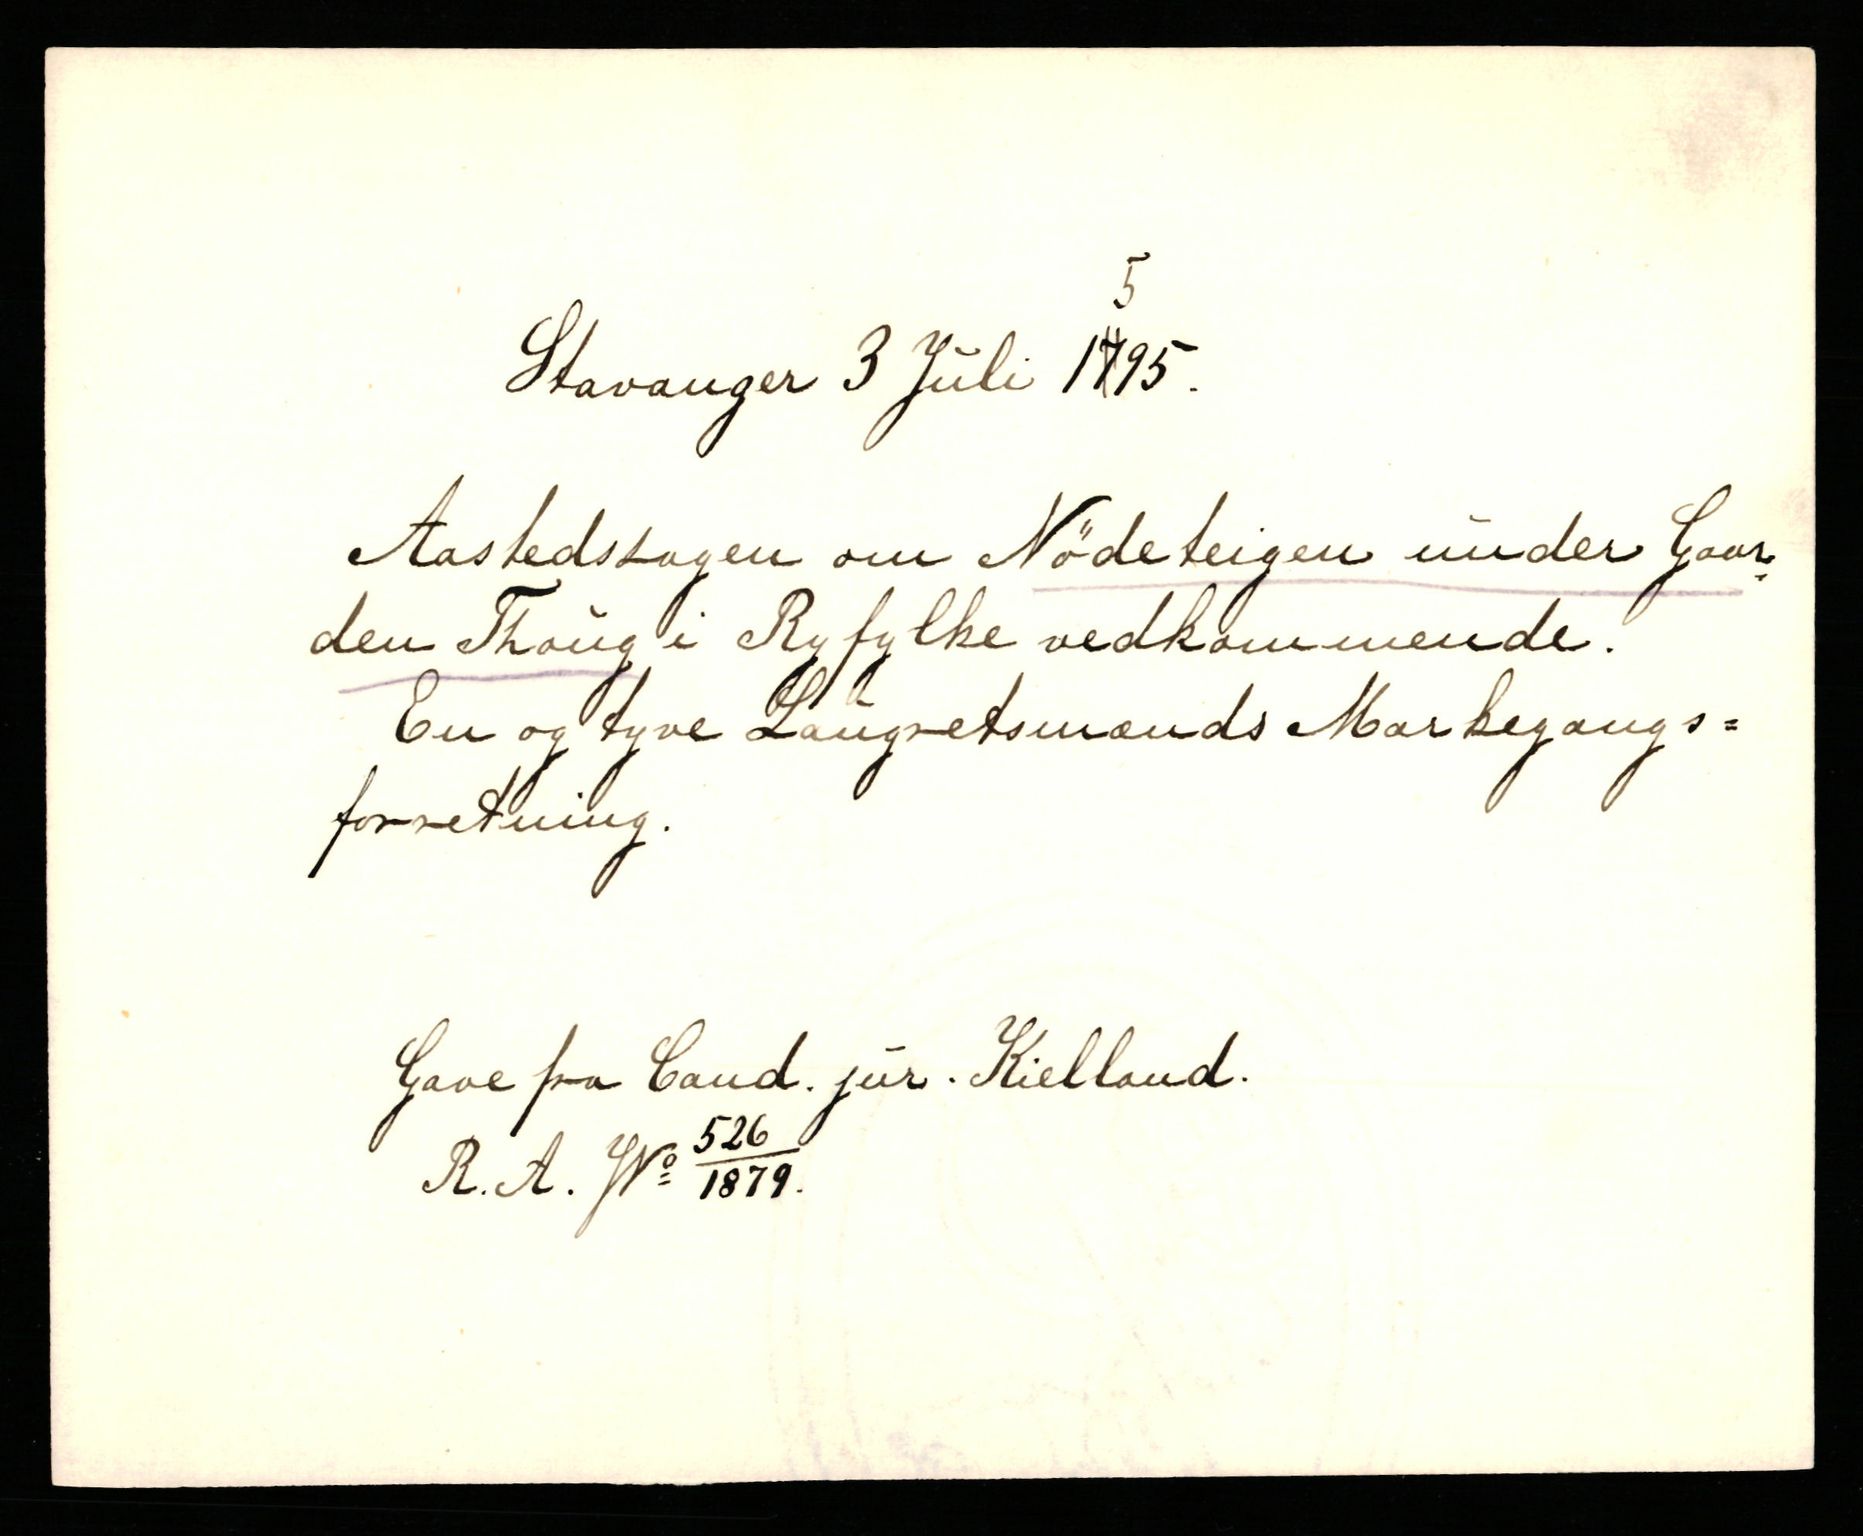 5
Stavanger 3 Juli 1795.
Aastedssagen om Nödeteigen under Gaar-
den Thoug i Ryfylke vedkommende.
En og tyve Laugretsmænds Markegangs=
forretning.
Gave fra Cand. jur. Kielland.
R. A. No 526
1879.